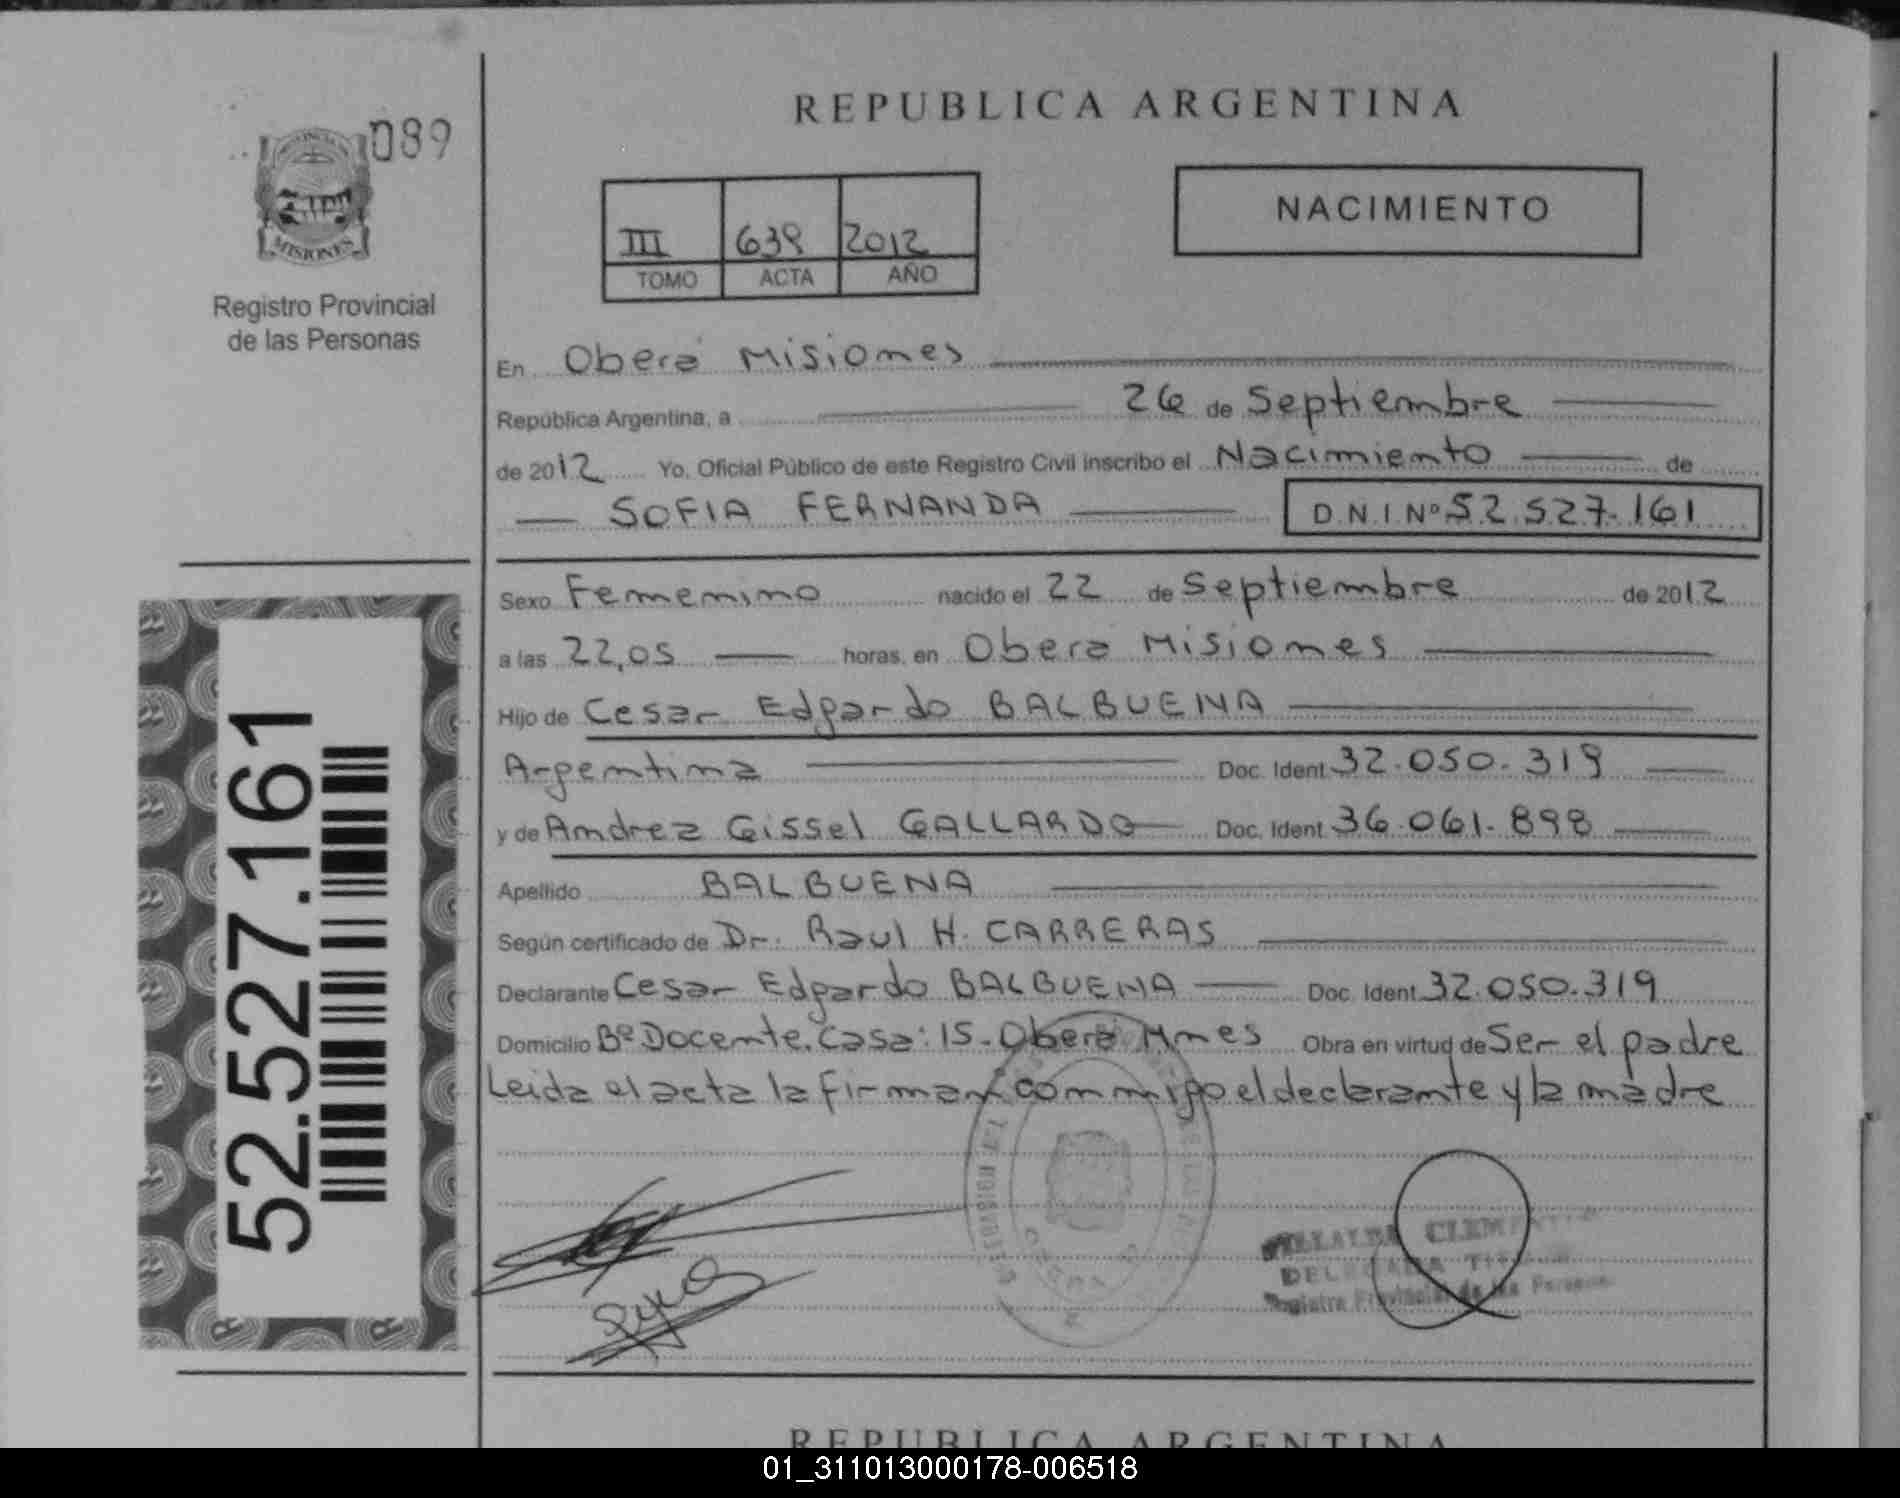 REPUBLICA ARGENTINA
089
MISIONES
Registro Provincial
de las Personas
NACIMIENTO
III 639 2012
TOMO ACTA AÑO
En Oberá Misiones
República Argentina, a 26 de Septiembre
de 2012 Yo, Oficial Público de este Registro Civil inscribo el Nacimiento de
SOFIA FERNANDA D.N.I.Nº 52.527.161
Sexo Femenino nacido el 22 de Septiembre de 2012
a las 22,05 horas, en Oberá Misiones
Hijo de Cesar Edgardo BALBUENA
Argentina Doc. Ident. 32.050.319
y de Andrea Gissel GALLARDO Doc. Ident. 36.061.898
Apellido BALBUENA
Según certificado de Dr. Raul H. CARRERAS
Declarante Cesar Edgardo BALBUENA Doc. Ident. 32.050.319
Domicilio Bº Docente. Casa: 15. Oberá Mnes Obra en virtud de Ser el padre
Leida el acta la firman conmigo el declarante y la madre
52.527.161
Registro Provincial de las
REPUBLICA ARGENTINA
01_311013000178-006518